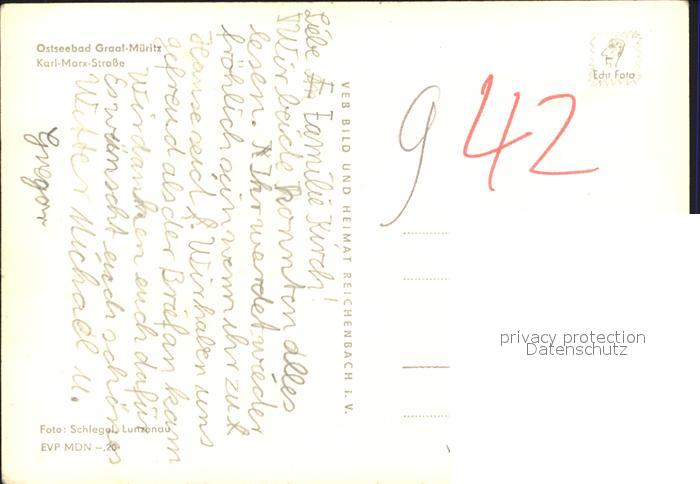 Ostseebad Graal-Müritz
Karl-Marx-Straße
Liebe Familie Kirch!
Wir beide konnten alles
lesen. Ihr werdet wieder
fröhlich sein wenn ihr zu
Hause seid. Wir haben uns
gefreud als der Brief an kam
Wir danken euch dafür
Er wünscht euch schönes
Wetter Michael u.
Gregor
Foto: Schlegel, Lunzenau
EVP MDN –,20
VEB BILD UND HEIMAT REICHENBACH i. V.
Echt Foto
9
42
privacy protection
Datenschutz